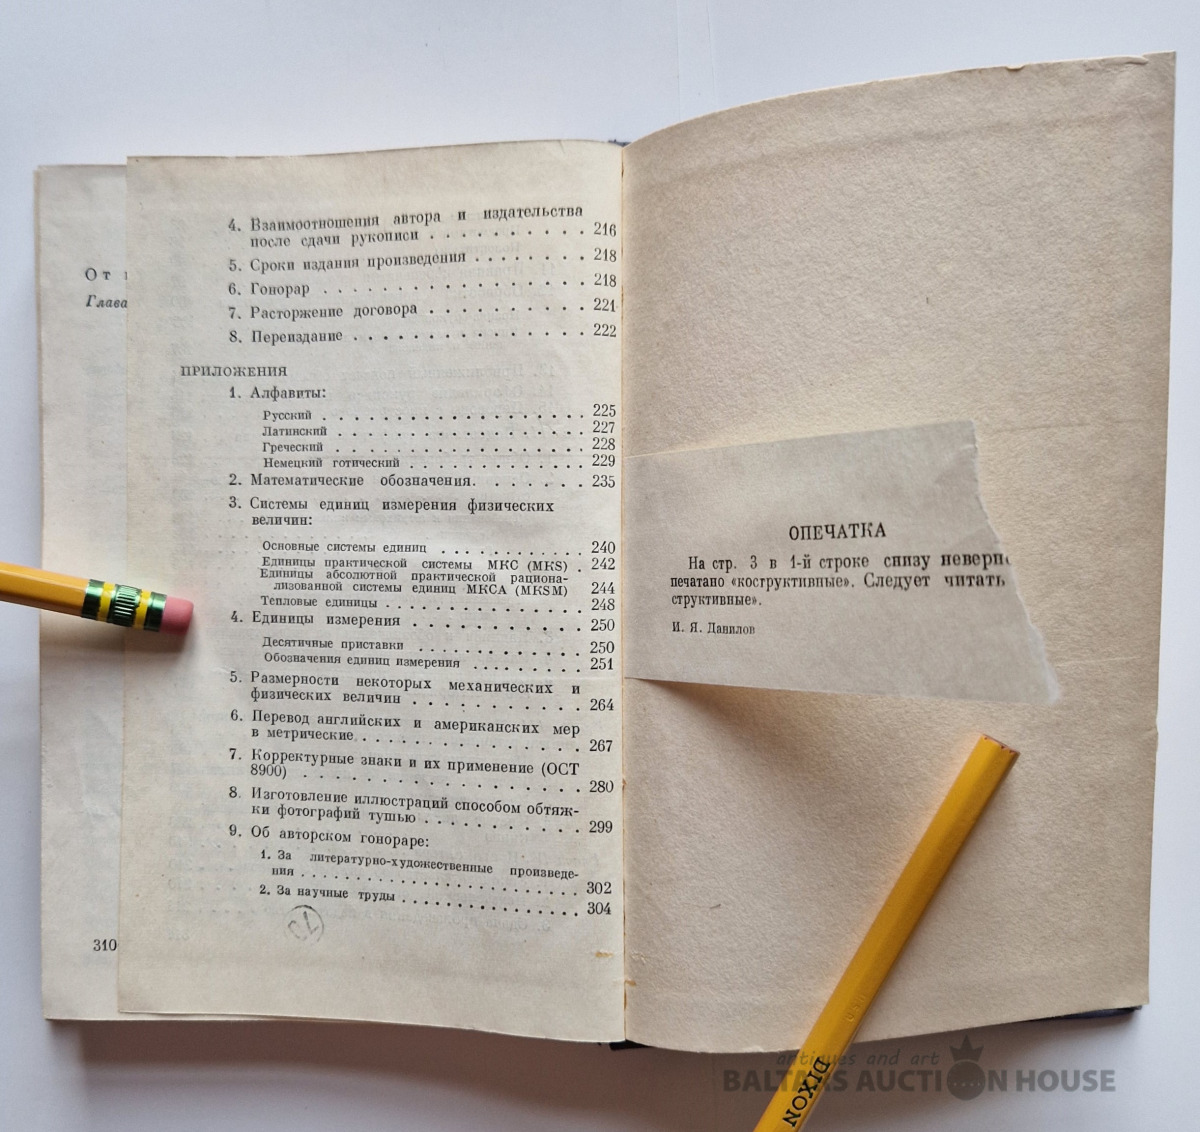 От
Глава
310
4. Взаимоотношения автора и издательства
после сдачи рукописи . . . . . . . . . . 216
5. Сроки издания произведения . . . . . . . 218
6. Гонорар . . . . . . . . . . . . . . . . 218
7. Расторжение договора . . . . . . . . . . 221
8. Переиздание . . . . . . . . . . . . . . 222
ПРИЛОЖЕНИЯ
1. Алфавиты:
Русский . . . . . . . . . . . . . . . . 225
Латинский . . . . . . . . . . . . . . . 227
Греческий . . . . . . . . . . . . . . . 228
Немецкий готический . . . . . . . . . . . 229
2. Математические обозначения. . . . . . . 235
3. Системы единиц измерения физических
величин:
Основные системы единиц . . . . . . . . . 240
Единицы практической системы МКС (MKS) . 242
Единицы абсолютной практической рациона-
лизованной системы единиц МКСА (MKSM) 244
Тепловые единицы . . . . . . . . . . . . 248
4. Единицы измерения . . . . . . . . . . . 250
Десятичные приставки . . . . . . . . . . 250
Обозначения единиц измерения . . . . . . . 251
5. Размерности некоторых механических и
физических величин . . . . . . . . . . . 264
6. Перевод английских и американских мер
в метрические . . . . . . . . . . . . . . 267
7. Корректурные знаки и их применение (ОСТ
8900) . . . . . . . . . . . . . . . . . 280
8. Изготовление иллюстраций способом обтяж-
ки фотографий тушью . . . . . . . . . . 299
9. Об авторском гонораре:
1. За литературно-художественные произведе-
ния . . . . . . . . . . . . . . . . . . 302
2. За научные труды . . . . . . . . . . . 304
ОПЕЧАТКА
На стр. 3 в 1-й строке снизу неверно
печатано «коструктивные». Следует читать
структивные».
И. Я. Данилов
DIXON
antiques and art
BALTARS AUCTION HOUSE